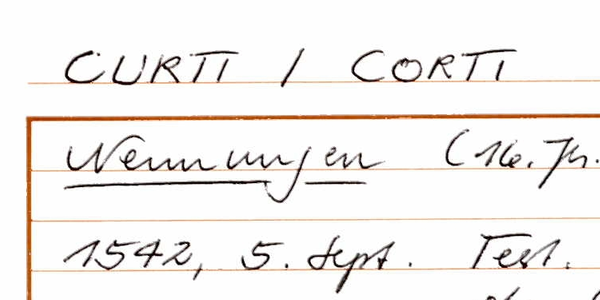 CURTI / CORTI
Nennungen (16. Jh.
1542, 5. Sept. Test.